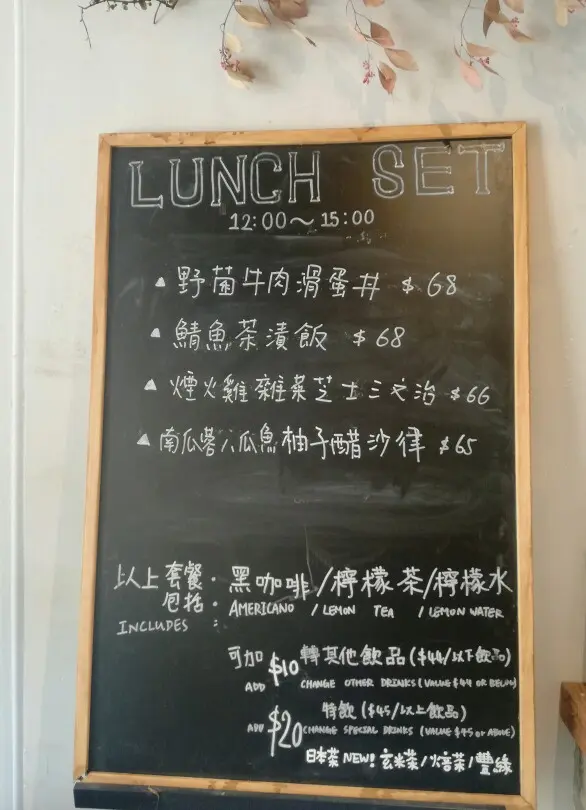 LUNCH SET
12:00～15:00
▲ 野菌牛肉滑蛋丼 $68
▲ 鯖魚茶漬飯 $68
▲ 煙火雞雜菜芝士三文治 $66
▲ 南瓜蓉八爪魚柚子醋沙律 $65
以上套餐・黑咖啡/檸檬茶/檸檬水
包括・AMERICANO /LEMON TEA /LEMON WATER
INCLUDES :
可加 $10 轉其他飲品($44/以下飲品)
ADD CHANGE OTHER DRINKS (VALUE $44 OR BELOW)
特飲($45/以上飲品)
ADD $20 CHANGE SPECIAL DRINKS (VALUE $45 OR ABOVE)
日本茶 NEW! 玄米茶/焙茶/